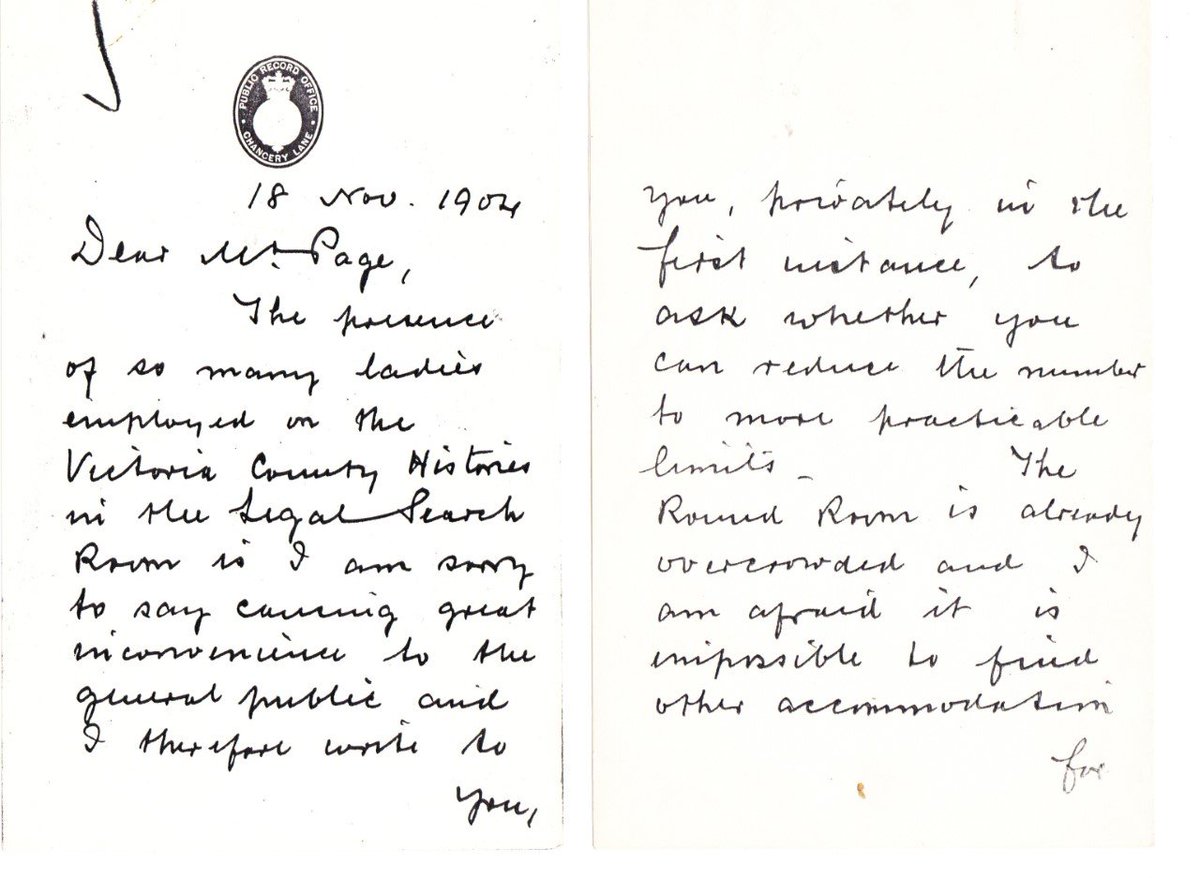 PUBLIC RECORD OFFICE
CHANCERY LANE
18 Nov. 1904
Dear Mr. Page,
The presence
of so many ladies
employed on the
Victoria County Histories
in the Legal Search
Room is I am sorry
to say causing great
inconvenience to the
general public and
I therefore write to
you,
you, privately in the
first instance, to
ask whether you
can reduce the number
to more practicable
limits. The
Round Room is already
overcrowded and I
am afraid it is
impossible to find
other accommodation
for